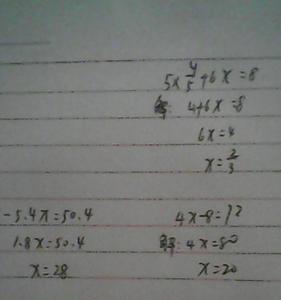 5×4/5+6x=8
解: 4+6x=8
6x=4
x=2/3
-5.4x=50.4
1.8x=50.4
x=28
4x-8=72
解: 4x=80
x=20